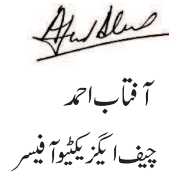 آفتاب احمد
چیف ایگزیکٹیو آفیسر